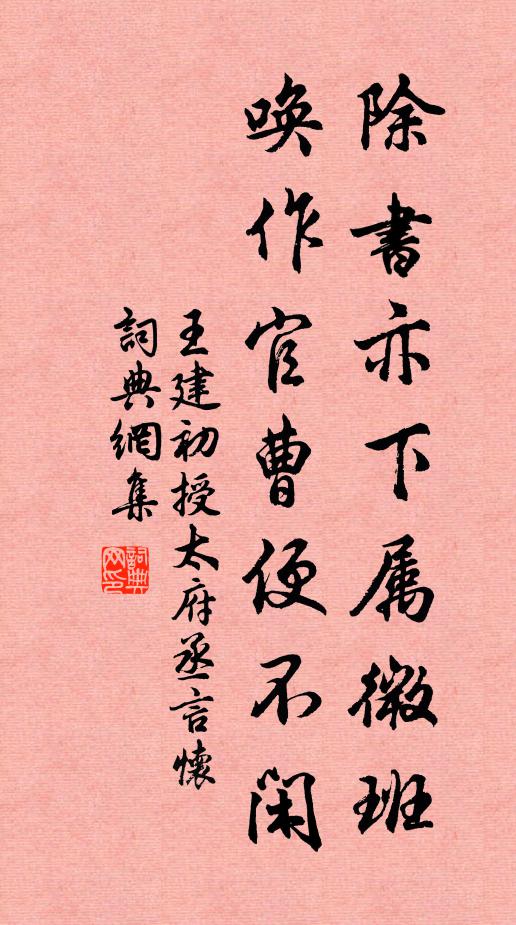 除書亦下属微班
喚作官曹便不閑
王建初授太府丞言懷
詞典網集
詞典網印